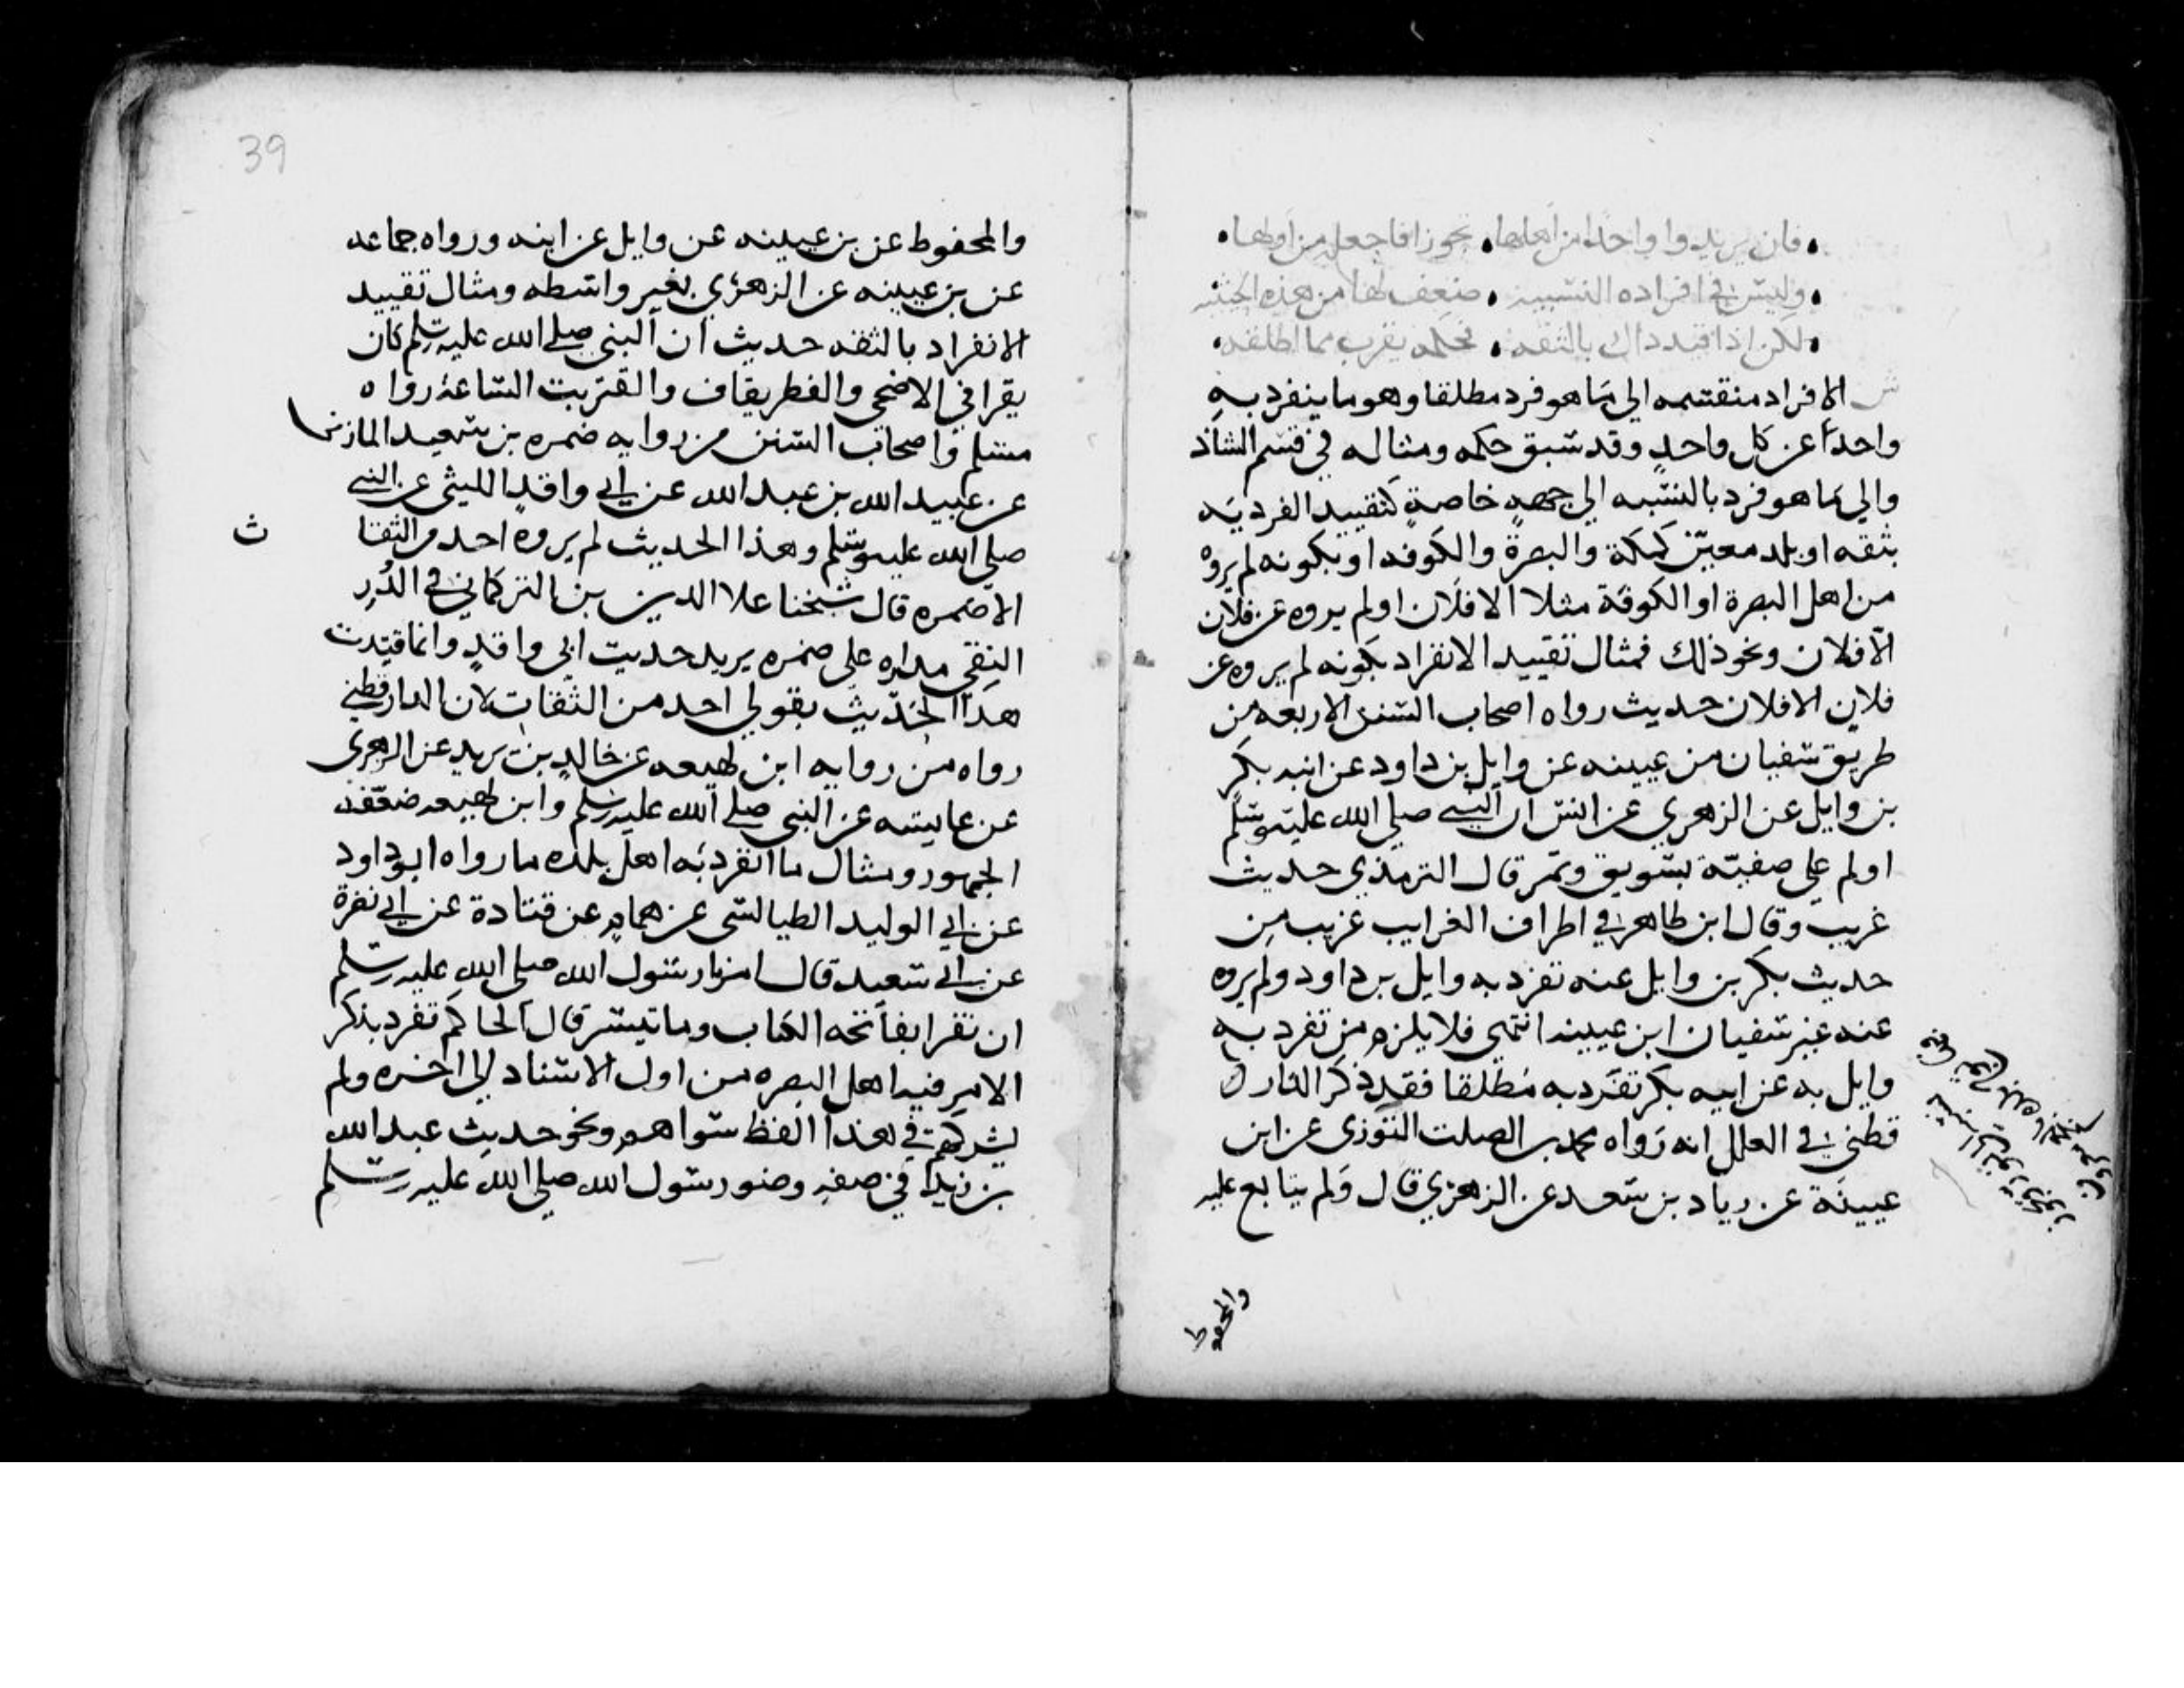 فان يريدوا واحدا من اهلها • تجوزا فاجعله من اولها •
• وليس في افراده النسبيه • ضعف لها من هذه الحيثيه
• لكن اذا قيد ذاك بالثقه • فحكمه يقرب مما اطلقه •
ش الافراد منقسمه الي ما هو فرد مطلقا وهو ما ينفرد به
واحد عن كل واحد وقد سبق حكمه ومثاله في قسم الشاذ
والي ما هو فرد بالنسبه الي جهة خاصة كتقييد الفرديه
بثقه او بلد معين كمكة والبصرة والكوفه او بكونه لم يروه
من اهل البصرة او الكوفة مثلا الا فلان او لم يروه عن فلان
الا فلان ونحو ذلك فمثال تقييد الانفراد بكونه لم يروه عن
فلان الا فلان حديث رواه اصحاب السنن الاربعه من
طريق سفيان من عيينه عن وايل بن داود عن ابنه بكر
بن وايل عن الزهري عن انس ان النبي صلي الله عليه وسلم
اولم علي صفية بسويق وتمر قال الترمذي حديث
غريب وقال ابن طاهر في اطراف الغرايب غريب من
حديث بكر بن وايل عنه تفرد به وايل بن داود ولم يروه
عنه غير سفيان ابن عيينه انتهي فلا يلزم من تفرد به
وايل به عن ابيه بكر تفرد به مطلقا فقد ذكر الدار
قطني في العلل انه رواه محمد بن الصلت التوزي عن ابن
عيينة عن زياد بن سعد عن الزهري قال ولم يتابع عليه
والمحفوظ
39
والمحفوظ عن بن عيينه عن وايل عن ابنه ورواه جماعه
عن بن عيينه عن الزهري بغير واسطه ومثال تقييد
الانفراد بالثقه حديث ان النبي صلي الله عليه وسلم كان
يقرا في الاضحي والفطر بقاف واقتربت الساعه رواه
مسلم واصحاب السنن من روايه ضمره بن سعيد المازني
عن عبيد الله بن عبد الله عن ابي واقد الليثي عن النبي
صلي الله عليه وسلم وهذا الحديث لم يروه احد من الثقا
ث
الا ضمره قال شيخنا علا الدين بن التركماني في الدر
النقي مداره علي ضمره يريد حديث ابي واقد وانما قيدت
هذا الحديث بقولي احد من الثقات لان الدارقطني
رواه من روايه ابن لهيعه عن خالد بن يزيد عن الزهري
عن عايشه عن النبي صلي الله عليه وسلم وابن لهيعه ضعفه
الجمهور ومثال ما انفرد به اهل بلده ما رواه ابو داود
عن ابي الوليد الطيالسي عن همام عن قتادة عن ابي نضرة
عن ابي سعيد قال امرنا رسول الله صلي الله عليه وسلم
ان نقرا بفاتحه الكتاب وما تيسر قال الحاكم تفرد بذكر
الامر فيه اهل البصره من اول الاسناد الي اخره ولم
يشركهم في هذا اللفظ سواهم ونحو حديث عبد الله
بن زيد في صفه وضو رسول الله صلي الله عليه وسلم